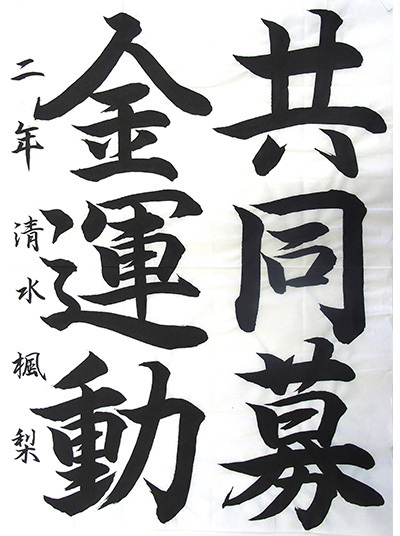 共同募
金運動
二年 清水楓梨